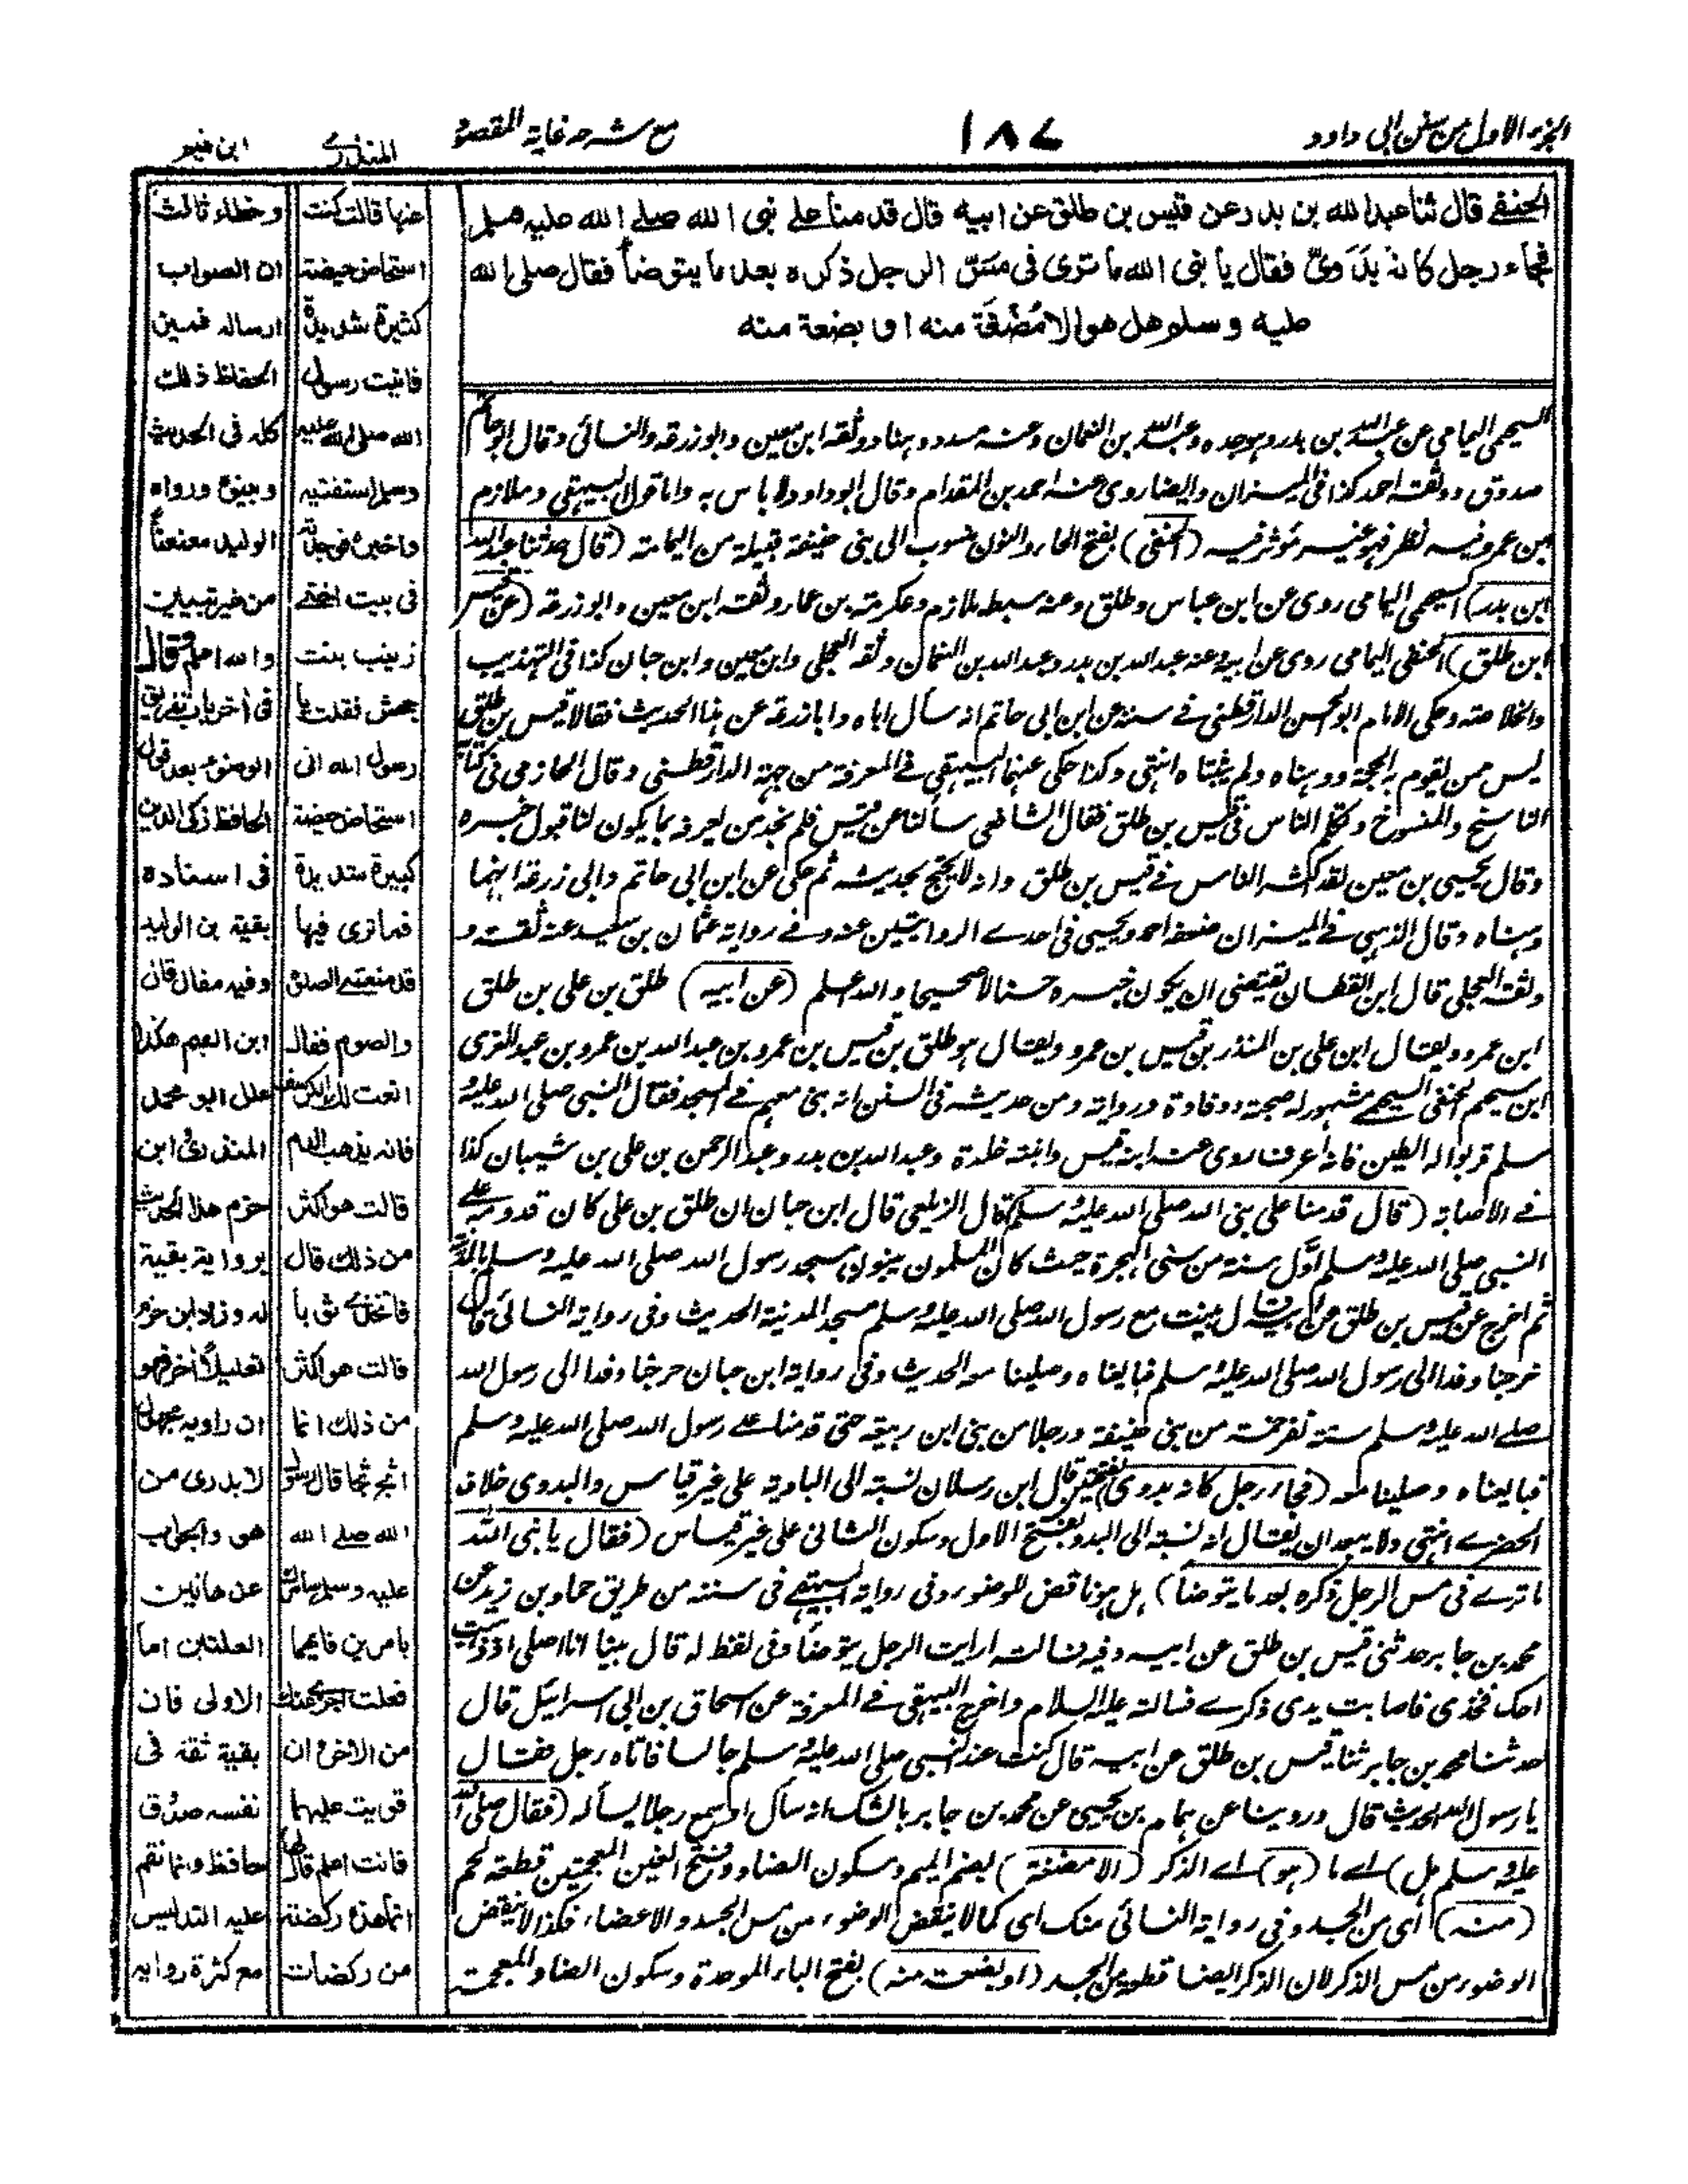 الجزء الاول من سنن ابى داود
١٨٧
مع شرحه غاية المقصود
المنذرى
ابن قيم
الحنفى قال ثنا عبد الله بن بدر عن قيس بن طلق عن ابيه قال قدمنا على نبى الله صلى الله عليه وسلم
فجاء رجل كانه بدوى فقال يا نبى الله ما ترى فى مس الرجل ذكره بعد ما يتوضأ فقال صلى الله
عليه وسلم هل هو الا مضغة منه او بضعة منه
السحيمى اليمامى عن عبد الله بن بدر وهو جده وعبد الله بن النعمان وعنه مسدد وهناد وثقه ابن معين وابو زرعة والنسائى وقال ابو حاتم
صدوق ووثقه احمد كذا فى الميزان وايضا روى عنه احمد بن المقدام وقال ابو داود لا باس به واما قول البيهقى وملازم
بن عمرو فيه نظر فهو غير مؤثر فيه (الحنفى) بفتح الحاء والنون منسوب الى بنى حنيفة قبيلة من اليمامة (قال حدثنا عبد الله
ابن بدر) السحيمى اليمامى روى عن ابن عباس وطلق وعنه سبطه ملازم وعكرمة بن عمار وثقه ابن معين وابو زرعة (عن قيس
ابن طلق) الحنفى اليمامى روى عن ابيه وعنه عبد الله بن بدر وعبد الله بن النعمان وثقه العجلى وابن معين وابن حبان كذا فى التهذيب
والخلاصة وحكى الامام ابو الحسن الدارقطنى فى سننه عن ابن ابى حاتم انه سأل اباه وابا زرعة عن هذا الحديث فقالا قيس بن طلق
ليس ممن يقوم به الحجة ووهناه ولم يثبتاه انتهى وكذا حكى عنهما البيهقى فى المعرفة من جهة الدارقطنى وقال الحازمى فى كتابه
الناسخ والمنسوخ وتكلم الناس فى قيس بن طلق فقال الشافعى سألنا عن قيس فلم نجد من يعرفه بما يكون لنا قبول خبره
وقال يحيى بن معين لقد اكثر الناس فى قيس بن طلق وانه لا يحتج بحديثه ثم حكى عن ابن ابى حاتم وابى زرعة انهما
وهناه وقال الذهبى فى الميزان ضعفه احمد ويحيى فى احدى الروايتين عنه وفى رواية عثمان بن سعيد عنه ثقة و
وثقه العجلى قال ابن القطان يقتضى ان يكون خبره حسنا لا صحيحا والله اعلم (عن ابيه) طلق بن على بن طلق
ابن عمرو ويقال ابن على بن المنذر بن قيس بن عمرو ويقال هو طلق بن قيس بن عمرو بن عبد الله بن عمرو بن عبد العزى
ابن سحيم الحنفى السحيمى مشهور له صحبة ووفادة ورواية ومن حديثه فى السنن انه بنى معهم فى المسجد فقال النبى صلى الله عليه و
سلم قربوا له الطين فانه اعرف روى عنه ابنه قيس وابنته خلدة وعبد الله بن بدر وعبد الرحمن بن على بن شيبان كذا
فى الاصابة (قال قدمنا على نبى الله صلى الله عليه وسلم) قال الزيلعى قال ابن حبان ان طلق بن على كان قدومه على
النبى صلى الله عليه وسلم اول سنة من سنى الهجرة حيث كان المسلمون يبنون مسجد رسول الله صلى الله عليه وسلم بالمدينة
ثم اخرج عن قيس بن طلق عن ابيه قال بنيت مع رسول الله صلى الله عليه وسلم مسجد المدينة الحديث وفى رواية النسائى قال
خرجنا وفدا الى رسول الله صلى الله عليه وسلم فبايعناه وصلينا معه الحديث وفى رواية ابن حبان خرجنا وفدا الى رسول الله
صلى الله عليه وسلم ستة نفر خمسة من بنى حنيفة ورجلا من بنى ابن ربيعة حتى قدمنا على رسول الله صلى الله عليه وسلم
فبايعناه وصلينا معه (فجاء رجل كانه بدوى) بفتحتين قال ابن رسلان نسبة الى البادية على غير قياس والبدوى خلاف
الحضرى انتهى ولا يبعد ان يقال انه نسبة الى البدو بفتح الاول وسكون الثانى على غير قياس (فقال يا نبى الله
ما ترى فى مس الرجل ذكره بعد ما يتوضأ) هل هو ناقض للوضوء وفى رواية البيهقى فى سننه من طريق حماد بن زيد عن
محمد بن جابر حدثنى قيس بن طلق عن ابيه وفيه فسالته ارايت الرجل يتوضأ وفى لفظ له قال بينا انا اصلى اذ ذهبت
احك فخذى فاصابت يدى ذكرى فسالته عليه السلام واخرج البيهقى فى المعرفة عن اسحاق بن ابى اسرائيل قال
حدثنا محمد بن جابر ثنا قيس بن طلق عن ابيه قال كنت عند النبى صلى الله عليه وسلم جالسا فاتاه رجل فقال
يا رسول الله الحديث قال وروينا عن همام بن يحيى عن محمد بن جابر بالشك انه سأل او سمع رجلا يسأله (فقال صلى الله
عليه وسلم هل) اى ما (هو) اى الذكر (الا مضغة) بضم الميم وسكون الضاد وفتح الغين المعجمتين قطعة لحم
(منه) اى من الجسد وفى رواية النسائى منك اى كما لا ينقض الوضوء من مس الجسد والاعضاء فكذا لا ينقض
الوضوء من مس الذكر لان الذكر ايضا قطعة من الجسد (او بضعة منه) بفتح الباء الموحدة وسكون الضاد المعجمة
عنها قالت كنت
استحاض حيضة
كثيرة شديدة
فاتيت رسول
الله صلى الله عليه
وسلم استفتيه
واخبره فوجدته
فى بيت اختى
زينب بنت
جحش فقلت يا
رسول الله انى
استحاض حيضة
كبيرة شديدة
فما ترى فيها
قد منعتنى الصلوة
والصوم فقال
انعت لك الكرسف
فانه يذهب الدم
قالت هو اكثر
من ذلك قال
فاتخذى ثوبا
قالت هو اكثر
من ذلك انما
اثج ثجا قال رسول
الله صلى الله
عليه وسلم سآمرك
بامرين فايهما
فعلت اجزى عنك
من الاخر وان
قويت عليهما
فانت اعلم قال لها
انما هذه ركضة
من ركضات
وخطاء ثالث
ان الصواب
ارساله فمين
الحفاظ ذلك
كله فى الحديث
وبينوه ورواه
الوليد معنعناً
من غير تبيان
والله اعلم وقال
فى اخر باب تفريق
الوضوء بعد قول
الحافظ زكى الدين
فى اسناده
بقية بن الوليد
وفيه مقال قال
ابن القيم هكذا
علل ابو محمد
المنذرى وابن
حزم هذا الحديث
برواية بقية
له وزاد ابن حزم
تعليلاً اخر وهو
ان راويه مجهول
لا يدرى من
هو والجواب
عن هاتين
العلتين اما
الاولى فان
بقية ثقة فى
نفسه صدوق
حافظ وانما نقم
عليه التدليس
مع كثرة روايه